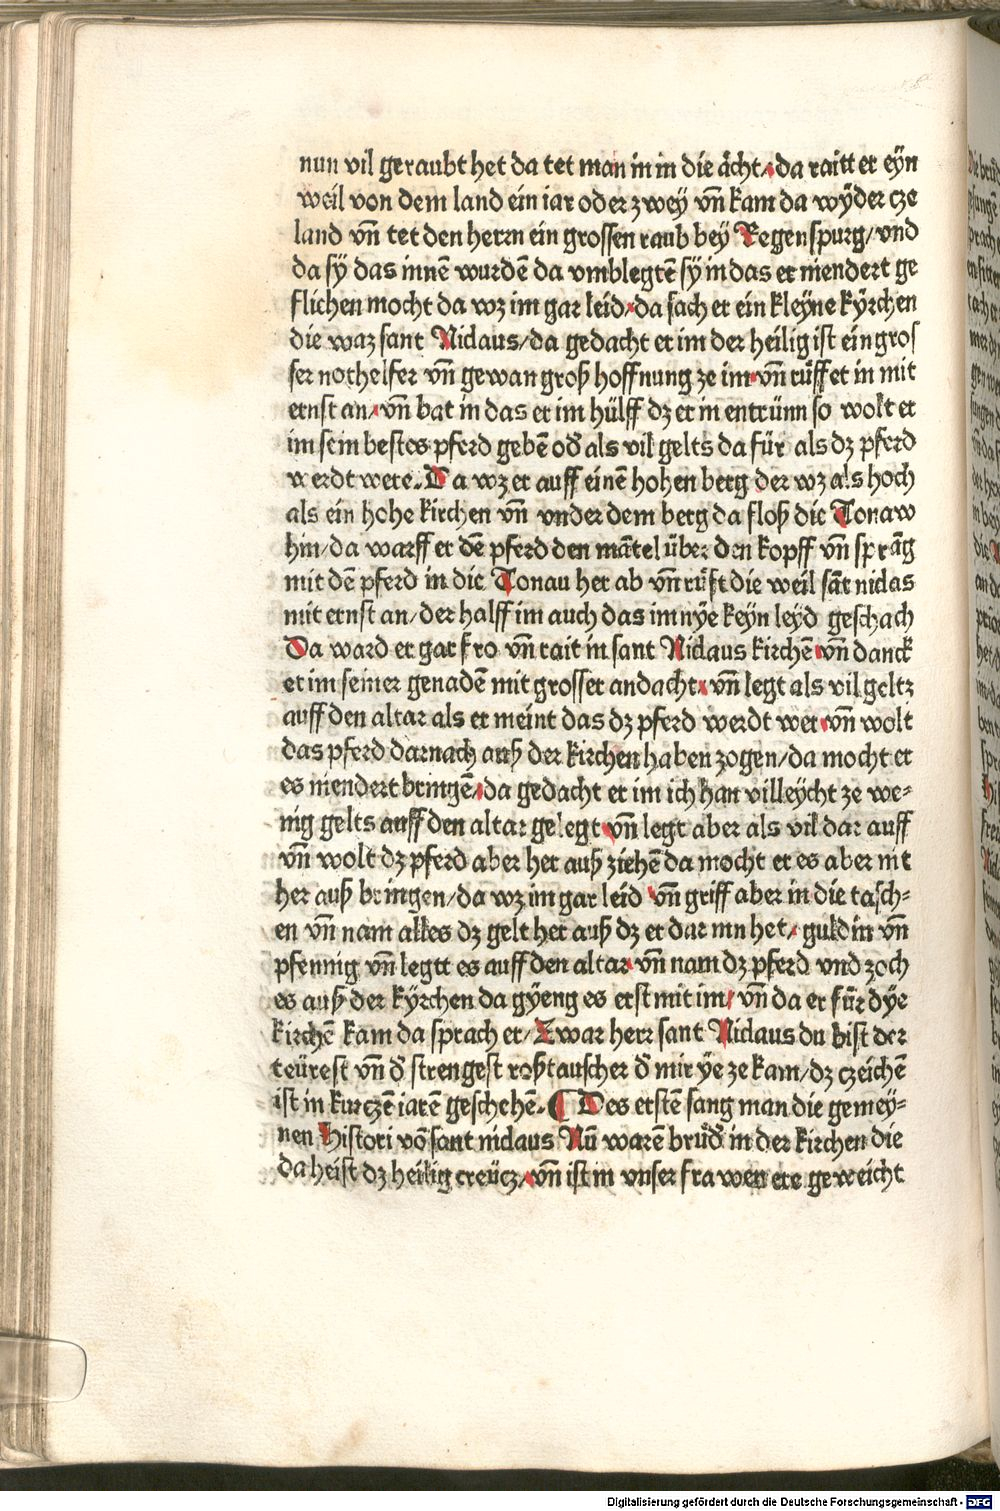 nun vil geraubt het da tet man in in die ächt / da raitt er eyn
weil von dem land ein iar oder zwey vn̄ kam da wÿder cze
land vn̄ tet den herrn ein grossen raub bey Regenspurg / vnd
da sÿ das innē wurdē da vmblegtē sÿ in das er niendert ge
flichen mocht da wz im gar leid / da sach er ein kleyne kÿrchen
die waz sant Niclaus / da gedacht er im der heilig ist ein gros
ser nothelfer vn̄ gewan groß hoffnung ze im vn̄ rüfft in mit
ernst an / vn̄ bat in das er im hülff dz er in entrünn so wolt er
im sein bestes pferd gebē od̄ als vil gelts da für als dz pferd
werdt were. Da wz er auff einē hohen berg der wz als hoch
als ein hohe kirchen vn̄ vnder dem berg da floß die Tonaw
hin / da warff er dē pferd den mātel über den kopff vn̄ sprāg
mit dē pferd in die Tonau her ab vn̄ rüft die weil sāt niclas
mit ernst an / der halff im auch das im nÿe keyn leyd geschach
Da ward er gar fro vn̄ rait in sant Niclaus kirchē vn̄ danck
et im seiner genadē mit grosser andacht / vn̄ legt als vil geltz
auff den altar als er meint das dz pferd werdt wer / vn̄ wolt
das pferd darnach auß der kirchen haben zogen / da mocht er
es niendert bringē / da gedacht er im ich han villeÿcht ze we⸗
nig gelts auff den altar gelegt vn̄ legt aber als vil dar auff
vn̄ wolt dz pferd aber her auß ziehē da mocht er es aber nit
her auß bringen / da wz im gar leid vn̄ griff aber in die tasch⸗
en vn̄ nam alles dz gelt her auß dz er dar inn het / guldin vn̄
pfennig vn̄ legtt es auff den altar vn̄ nam dz pferd vnd zoch
es auß der kÿrchen da gÿeng es erst mit im / vn̄ da er für dÿe
kirchē kam da sprach er / Zwar herr sant Niclaus du bist der
teürest vn̄ d̄ strengest roßtauscher d̄ mir ÿe ze kam / dz czeichē
ist in kurczē iarē geschehē. ¶ Des erstē sang man die gemey⸗
nen Histori vō sant niclaus Nū warē brüd̄ in der kirchen die
da heist dz heilig creücz / vn̄ ist in vnser frawen ere geweicht
Digitalisierung gefördert durch die Deutsche Forschungsgemeinschaft - DFG